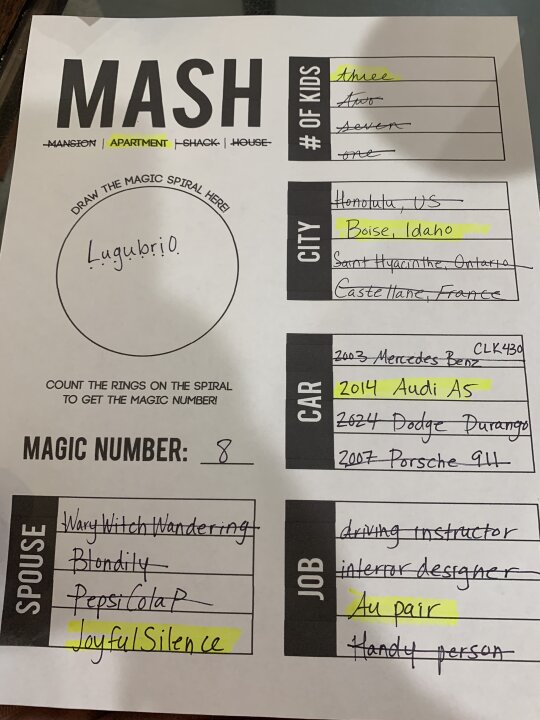 MASH
MANSION | APARTMENT | SHACK | HOUSE
DRAW THE MAGIC SPIRAL HERE!
Lugubrio
COUNT THE RINGS ON THE SPIRAL
TO GET THE MAGIC NUMBER!
MAGIC NUMBER: 8
SPOUSE
WaryWitchWandering
Blondily
PepsiColaP
JoyfulSilence
# OF KIDS
three
Two
seven
one
CITY
Honolulu, US
Boise, Idaho
Saint Hyacinthe, Ontario
Castellane, France
CAR
2003 Mercedes Benz CLK430
2014 Audi A5
2024 Dodge Durango
2007 Porsche 911
JOB
driving instructor
interior designer
Au pair
Handy person